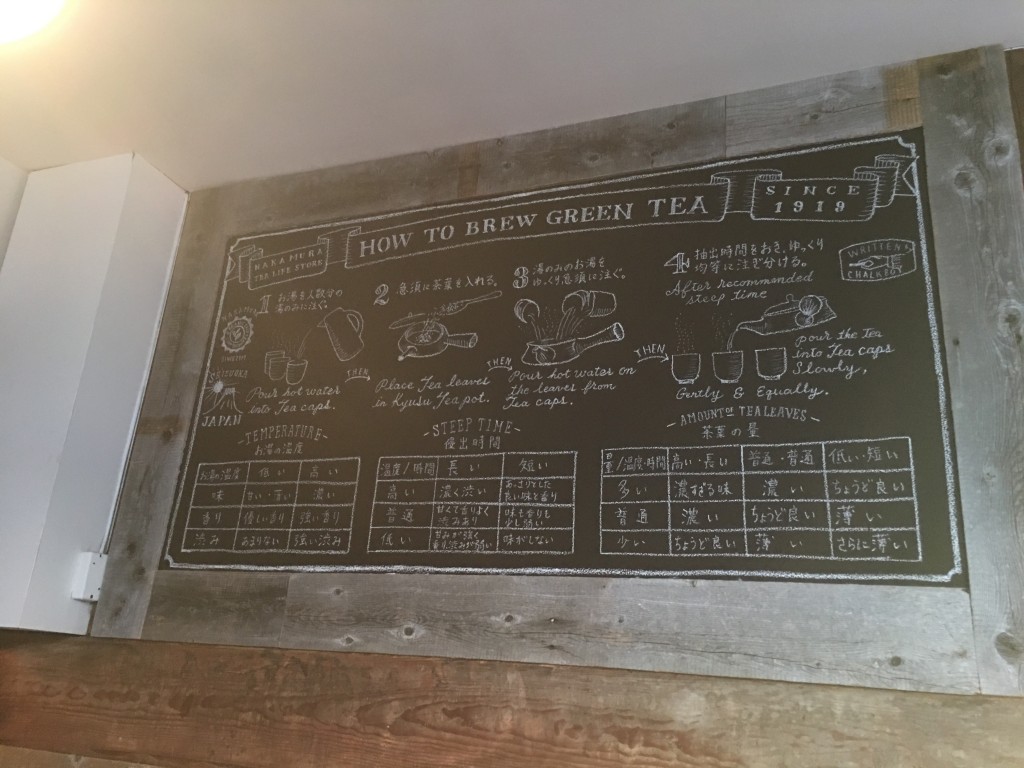 NAKAMURA
TEA LIFE STORE
HOW TO BREW GREEN TEA
SINCE
1919
WRITTEN BY
CHALKBOY
SHIZUOKA
JAPAN
1 お湯を人数分の
湯のみに注ぐ
Pour hot water
into Tea caps.
THEN
2 急須に茶葉を入れる。
Place Tea leaves
in Kyusu Tea pot.
THEN
3 湯のみのお湯を
ゆっくり急須に注ぐ。
Pour hot water on
the leaves from
Tea caps.
THEN
4 抽出時間をおき、ゆっくり
均等に注ぎ分ける。
After recommended
steep time
pour the tea
into Tea caps
Slowly,
Gently & Equally.
TEMPERATURE
お湯の温度
お湯の温度 低い 高い
味 甘い・苦い 濃い
香り 優しい香り 強い香り
渋み あまりない 強い渋み
STEEP TIME
浸出時間
温度/時間 長い 短い
高い 濃く渋い あっさりとした
良い味と香り
普通 甘くて香りよく
渋みあり 味も香りも
少し弱い
低い 甘みが強く
香り渋みが弱い 味がしない
AMOUNT OF TEA LEAVES
茶葉の量
量/温度・時間 高い・長い 普通・普通 低い・短い
多い 濃すぎる味 濃い ちょうど良い
普通 濃い ちょうど良い 薄い
少い ちょうど良い 薄い さらに薄い